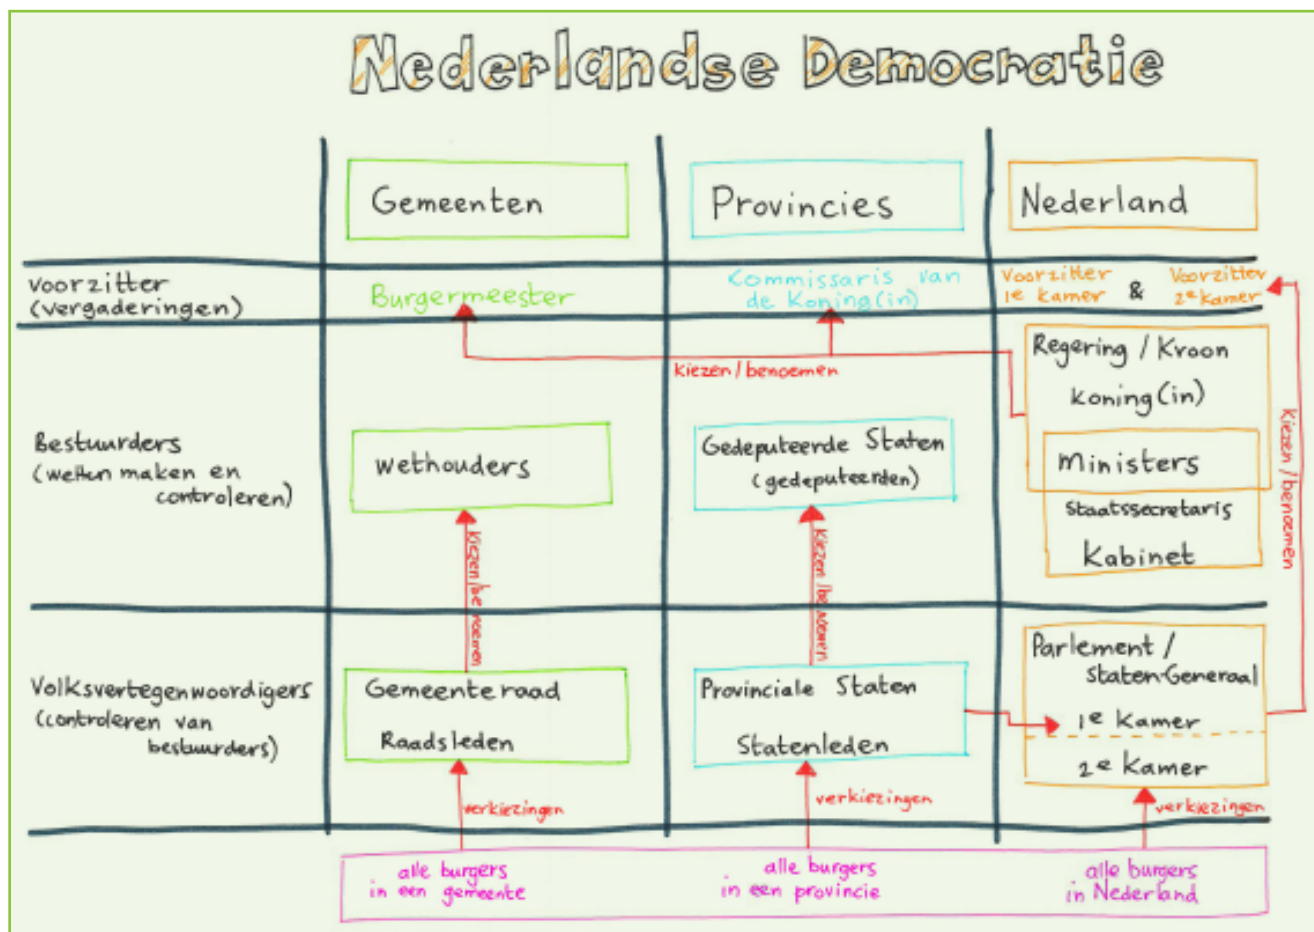 Nederlandse Democratie
Gemeenten
Provincies
Nederland
Voorzitter
(vergaderingen)
Burgermeester
Commissaris van
de Koning(in)
Voorzitter
1e kamer
&
Voorzitter
2e kamer
kiezen/benoemen
Bestuurders
(wetten maken en
controleren)
Wethouders
Gedeputeerde Staten
(gedeputeerden)
Regering / Kroon
Koning(in)
Ministers
Staatssecretaris
Kabinet
kiezen/benoemen
kiezen/benoemen
kiezen/benoemen
Volksvertegenwoordigers
(controleren van
bestuurders)
Gemeenteraad
Raadsleden
Provinciale Staten
Statenleden
Parlement /
Staten-Generaal
1e Kamer
2e Kamer
verkiezingen
verkiezingen
verkiezingen
alle burgers
in een gemeente
alle burgers
in een provincie
alle burgers
in Nederland